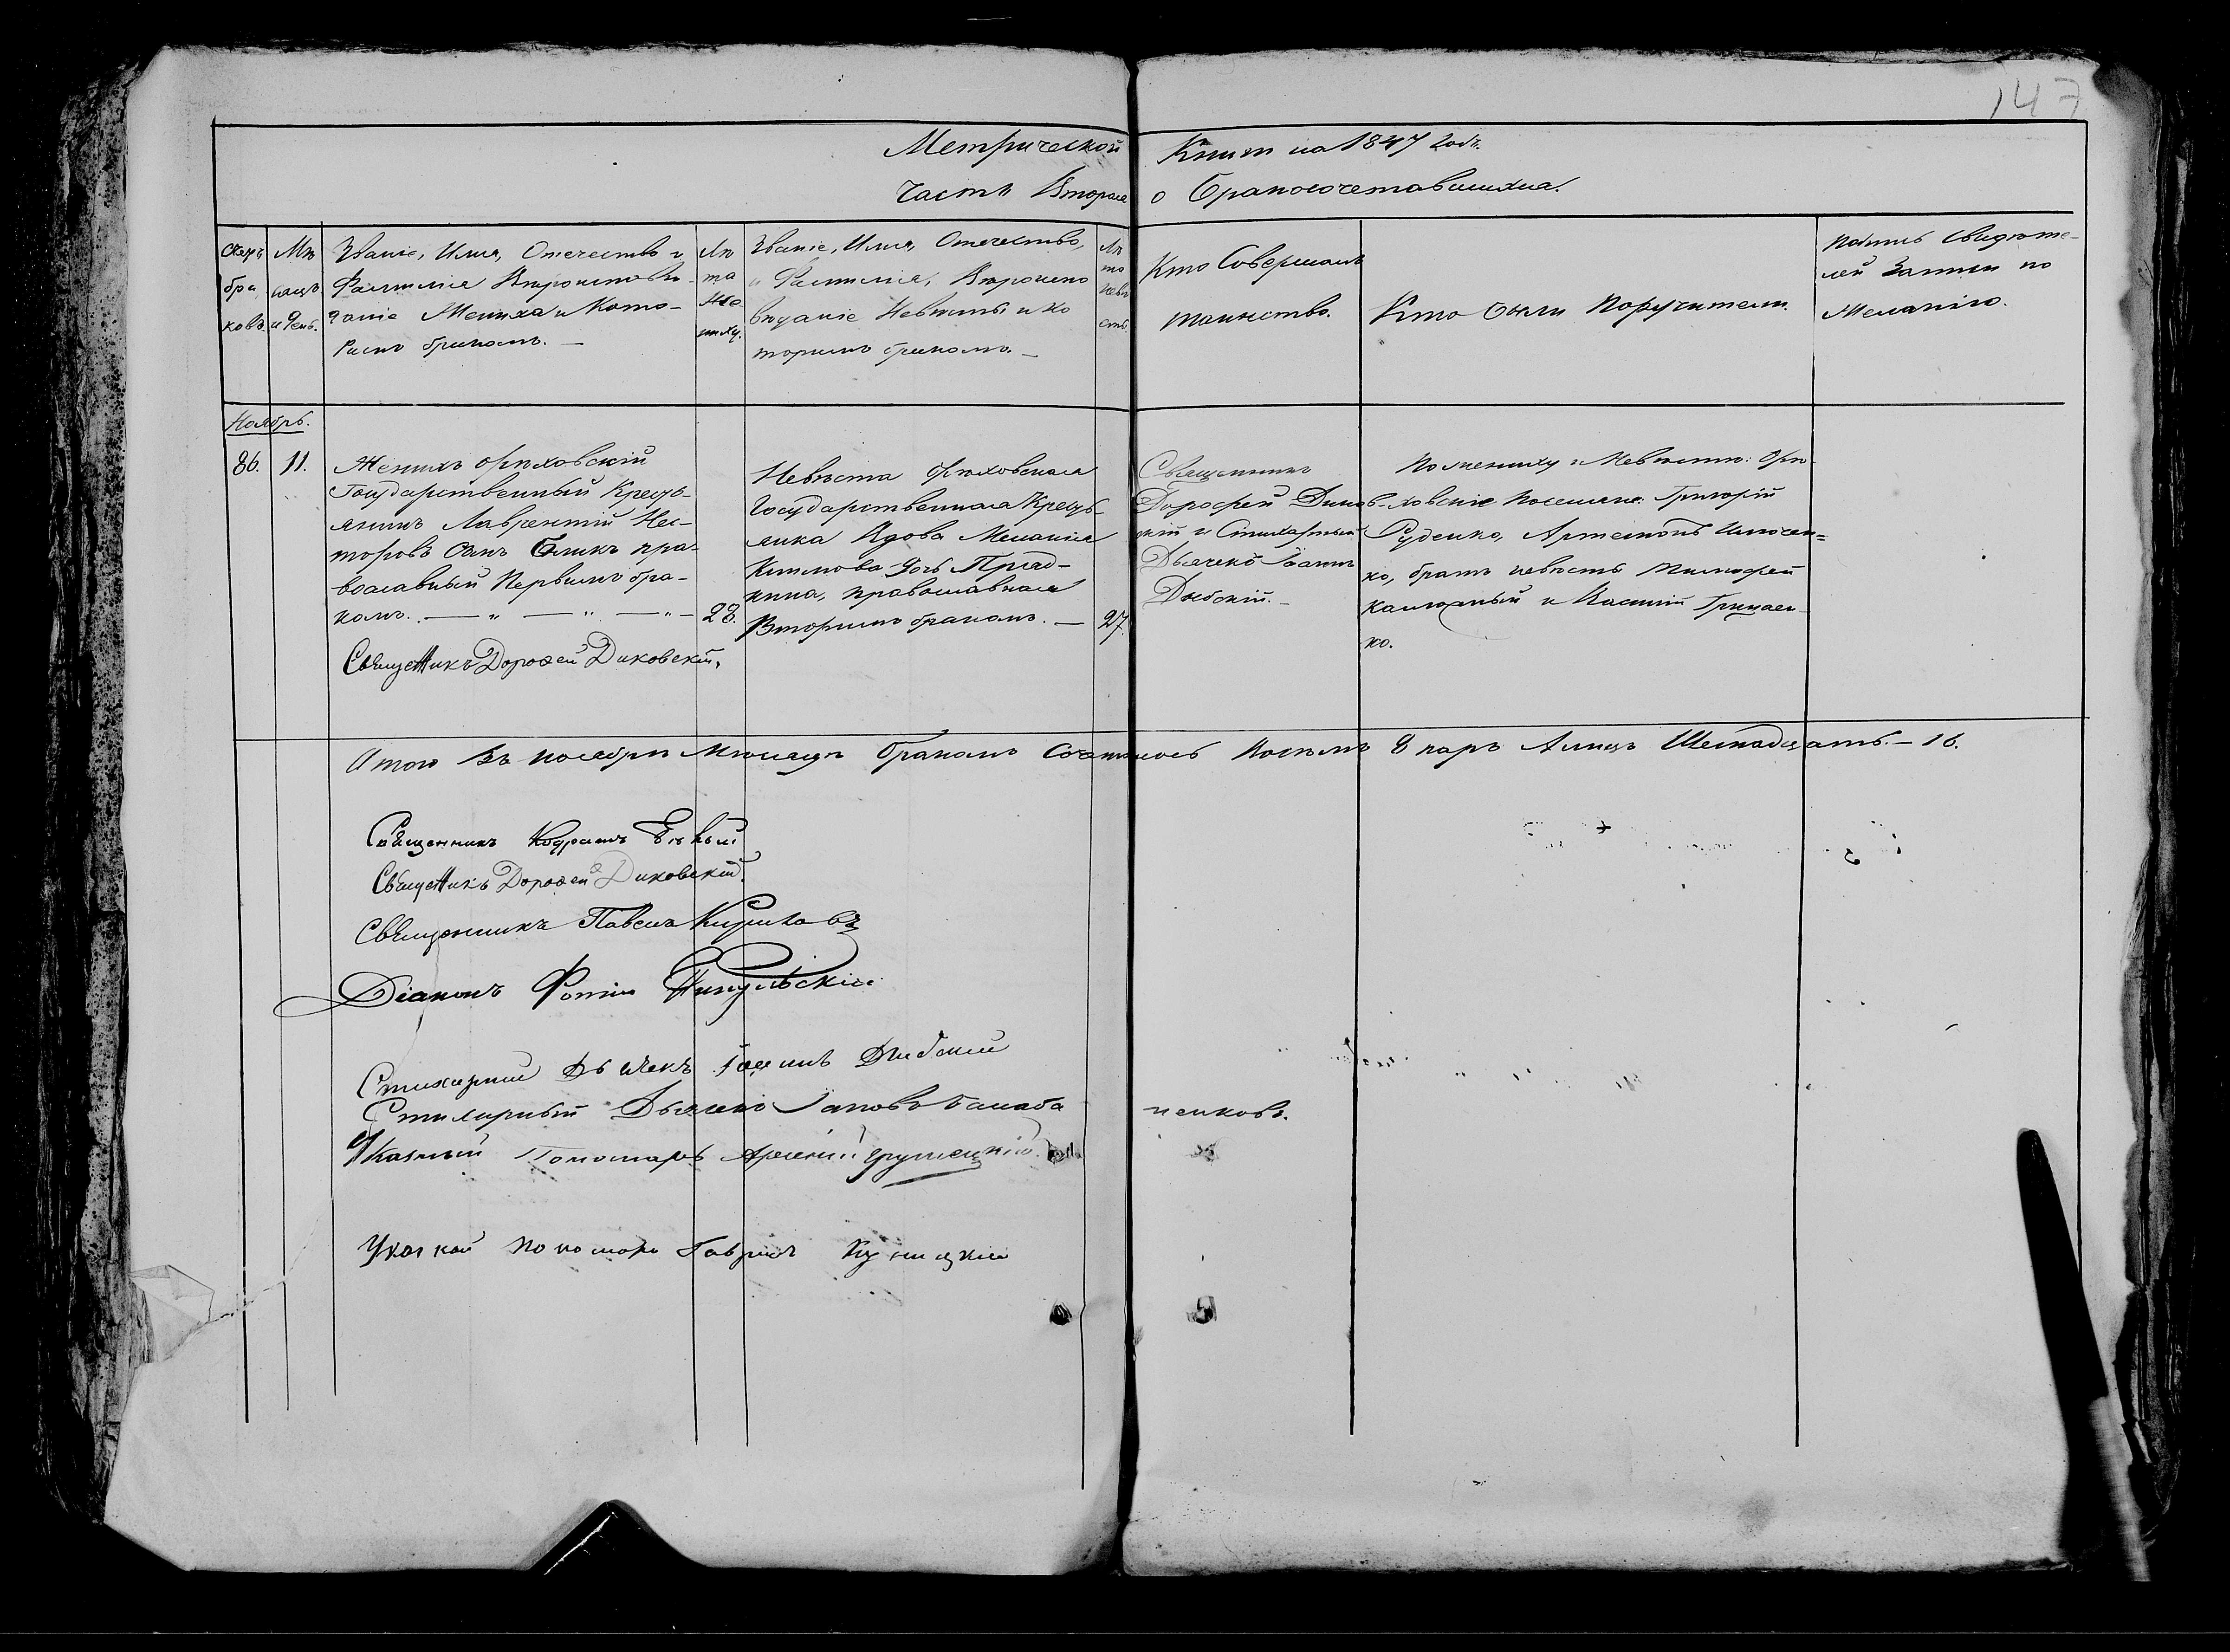 147
Метрической Книги на 1847 годъ.
Часть Вторая о Бракосочетавшихся.
Счетъ браковъ.
Мѣсяцъ и День.
Званіе, Имя, Отечество и
Фамилія Вѣроисповѣ-
даніе Жениха и Кото-
рымъ бракомъ. —
Лѣ
та
Же
ниху.
Званіе, Имя, Отечество,
и Фамилія, Вѣроиспо
вѣданіе Невѣсты и ко
торымъ бракомъ. —
Лѣ
та
невѣ
сты.
Кто Совершалъ
таинство.
Кто были Поручители.
подпись Свидѣте-
лей Записи по
Желанію.
Ноябрь.
86.
11.
Женихъ Орѣховскій
Государственный Кресть-
янинъ Лаврентій Нес-
торовъ Сынъ Бликъ пра-
вославный Первымъ бра-
комъ. — „ — „ — „ —
28.
Священникъ Дороѳей Диковскій.
Невѣста Орѣховская
Государственная Кресть-
янка Вдова Меланія
Климова дочь
православная
Вторымъ бракомъ. —
27.
Священникъ
Дорофей Диков-
скій и Стихарный
Дьячекъ Іоаннъ
Дыбскій. —
По жениху и Невѣстѣ: Орѣ-
ховскіе поселяне: Григорій
Руденко, Артемонъ
ко, братъ невѣсты Тимофей
и Василій Грицаен-
ко.
Итого Въ ноябрѣ Мѣсяцѣ Бракомъ Сочеталось Восемь 8 паръ А лицъ Шестнадцать. — 16.
Священникъ Кодратъ
Священникъ Дороѳей Диковскій.
Священникъ Павелъ Кириловъ
Діаконъ Фотій
Стихарный Дьячекъ Іоаннъ Дибскій
Стихарный Дьячекъ Іаковъ
Указный Пономарь Арсеній Грушецкій.
Указной пономарь Гавріилъ Куницкій